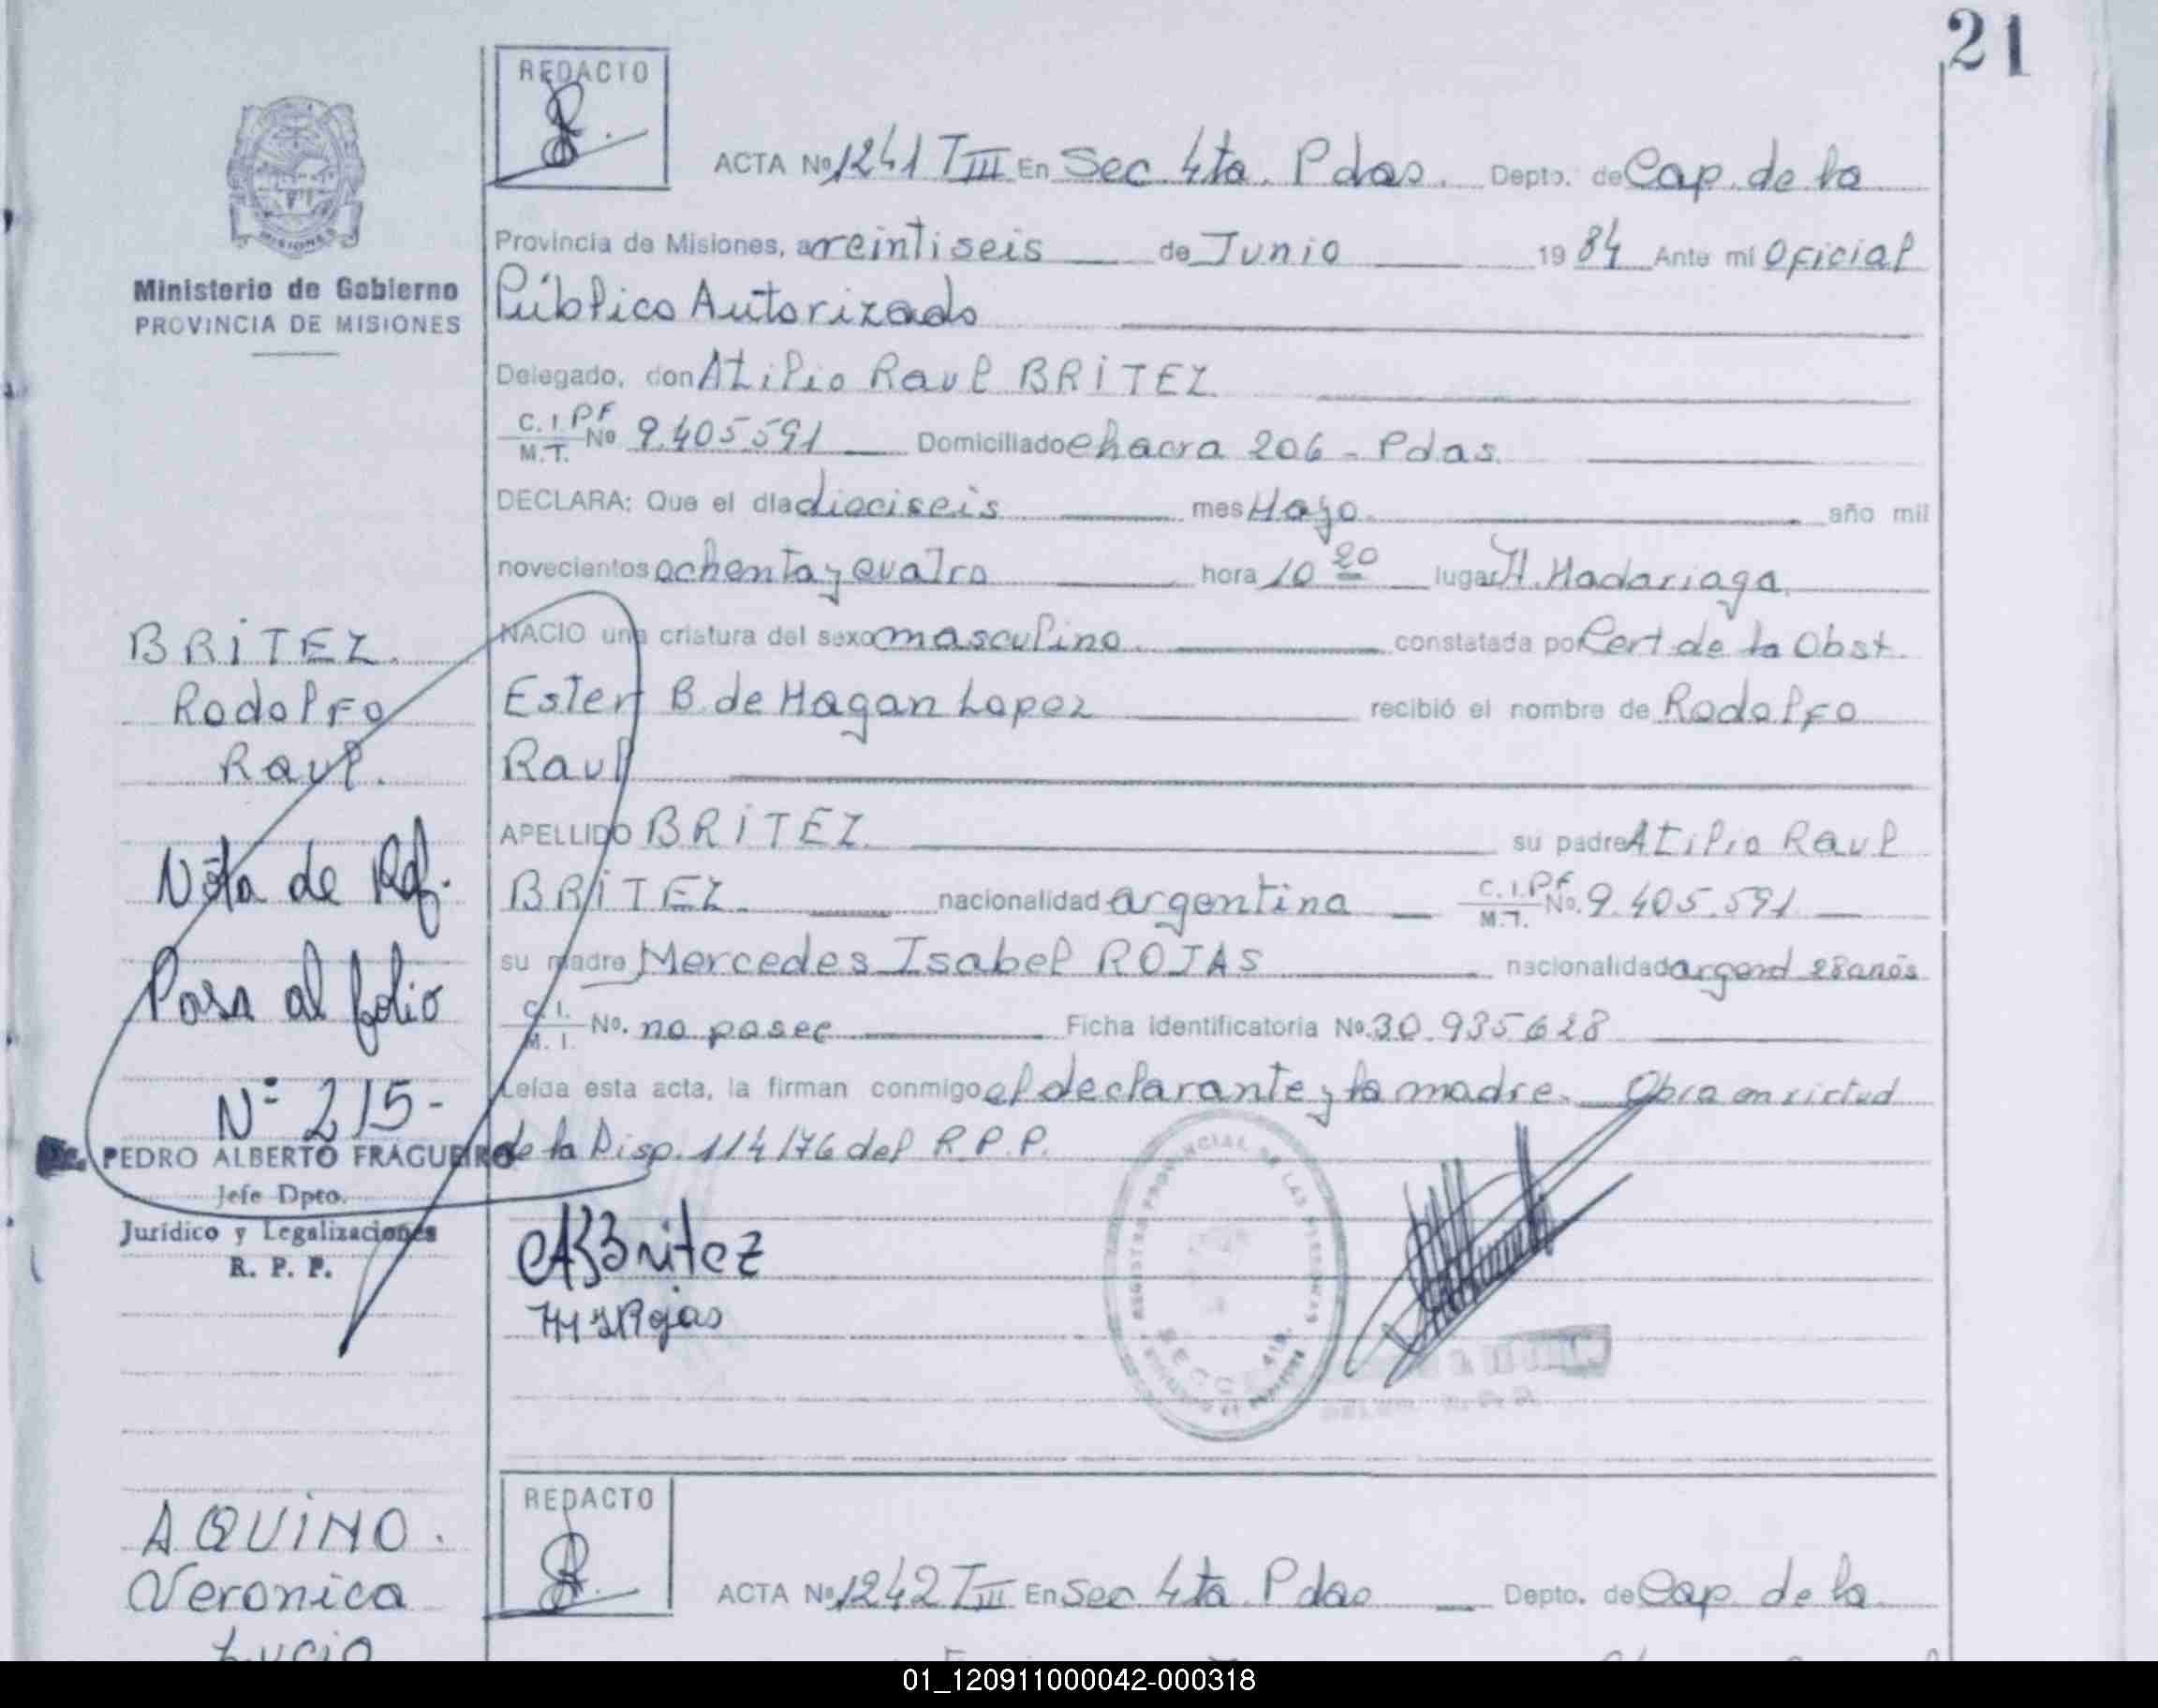 21
REDACTO
ACTA Nº 1241 TIII En Sec. 4ta. Pdas. Depto. de Cap. de la
MISIONES
Ministerio de Gobierno
PROVINCIA DE MISIONES
Provincia de Misiones, a veintiseis de Junio 1984 Ante mi Oficial
Público Autorizado
Delegado, don Atilio Raul BRITEZ
C.I. PF
M.T. Nº 9.405.591 Domiciliado chacra 206 - Pdas.
DECLARA: Que el día dieciseis mes Mayo. año mil
novecientos ochenta y cuatro hora 10 20 lugar H. Madariaga
NACIO una criatura del sexo masculino. constatada por Cert de la Obst.
Ester B. de Magan Lopez recibió el nombre de Rodolfo
Raul
APELLIDO BRITEZ su padre Atilio Raul
BRITEZ nacionalidad argentina C.I. PF M.T. No. 9.405.591
su madre Mercedes Isabel ROJAS nacionalidad argend 28 años
C.I.
M.I. No. no posee Ficha identificatoria Nº 30.935.628
Leída esta acta, la firman conmigo el declarante y la madre. Obra en virtud
de la Disp. 114/76 del R.P.P.
BRITEZ.
Rodolfo
Raul.
Nota de Ref.
Pasa al folio
Nº 215-
PEDRO ALBERTO FRAGUEIRO
Jefe Dpto.
Jurídico y Legalizaciones
R. P. P.
ARBritez
MIRojas
REGISTRO PROVINCIAL DE LAS PERSONAS
SECC. 4ta.
REDACTO
ACTA Nº 1242 TIII En Sec 4ta. Pdas Depto. de Cap. de la
AQUINO.
Veronica
01_120911000042-000318